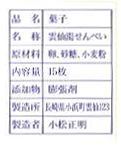 品名 菓子
名称 雲仙湯せんぺい
原材料 卵、砂糖、小麦粉
内容量 15枚
添加物 膨張剤
製造所 長崎県小浜町雲仙123
製造者 小松正明